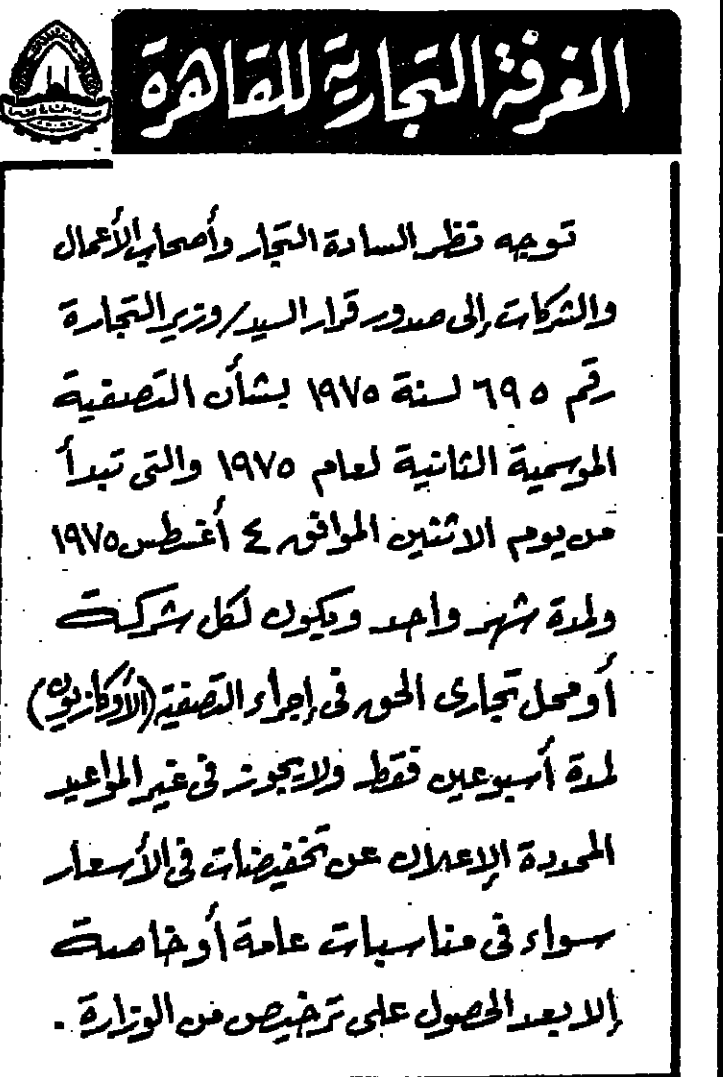 الغرفة التجارية للقاهرة
توجه نظر السادة التجار وأصحاب الأعمال
والشركات إلى صدور قرار السيد/وزير التجارة
رقم ٦٩٥ لسنة ١٩٧٥ بشأن التصفية
الموسمية الثانية لعام ١٩٧٥ والتى تبدأ
من يوم الاثنين الموافق ٤ أغسطس ١٩٧٥
ولمدة شهر واحد ويكون لكل شركة
أو محل تجارى الحق فى إجراء التصفية (الأوكازيون)
لمدة أسبوعين فقط ولا يجوز فى غير المواعيد
المحددة الإعلان عن تخفيضات فى الأسعار
سواء فى مناسبات عامة أو خاصة
إلا بعد الحصول على ترخيص من الوزارة .